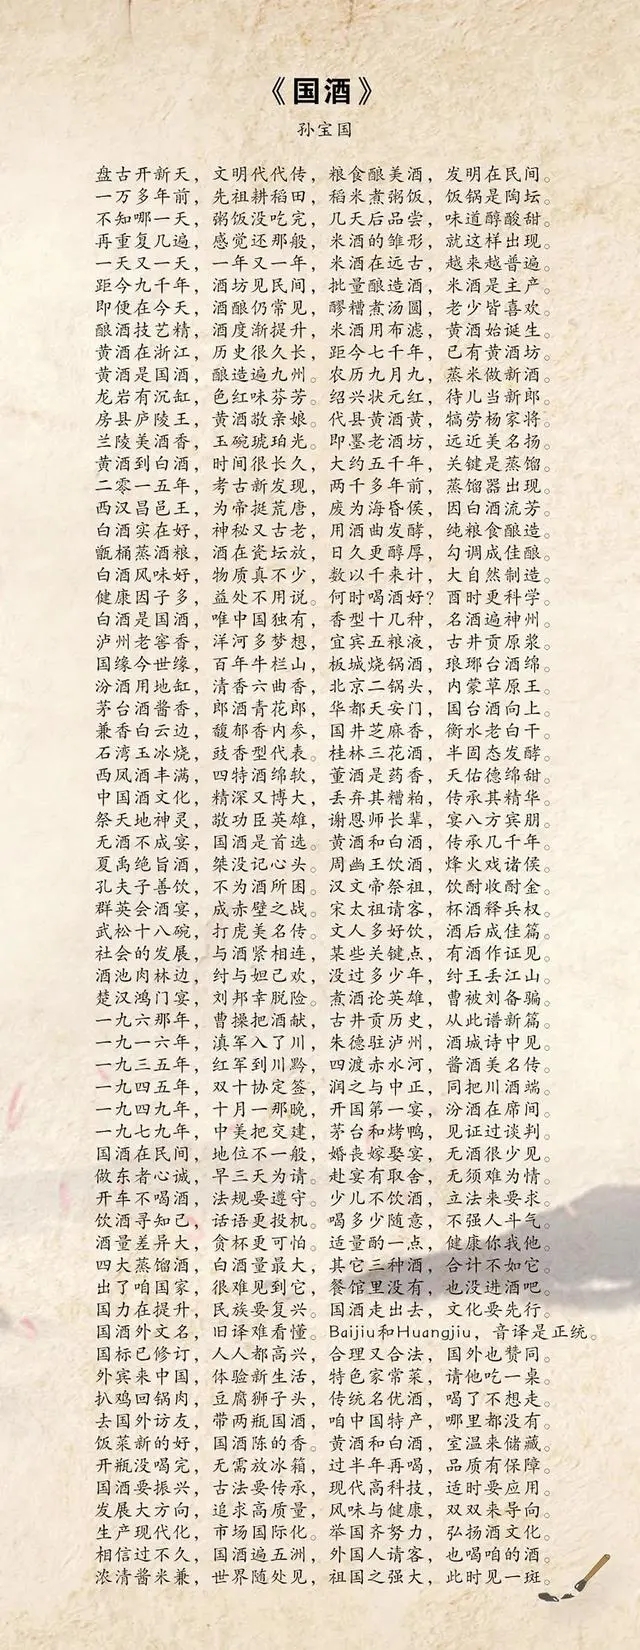 《国酒》
孙宝国
盘古开新天，文明代代传，粮食酿美酒，发明在民间。
一万多年前，先祖耕稻田，稻米煮粥饭，饭锅是陶坛。
不知哪一天，粥饭没吃完，几天后品尝，味道醇酸甜。
再重复几遍，感觉还那般，米酒的雏形，就这样出现。
一天又一天，一年又一年，米酒在远古，越来越普遍。
距今九千年，酒坊见民间，批量酿造酒，米酒是主产。
即便在今天，酒酿仍常见，醪糟煮汤圆，老少皆喜欢。
酿酒技艺精，酒度渐提升，米酒用布滤，黄酒始诞生。
黄酒在浙江，历史很久长，距今七千年，已有黄酒坊。
黄酒是国酒，酿造遍九州。农历九月九，蒸米做新酒。
龙岩有沉缸，色红味芬芳。绍兴状元红，待儿当新郎。
房县庐陵王，黄酒敬亲娘。代县黄酒黄，犒劳杨家将。
兰陵美酒香，玉碗琥珀光。即墨老酒坊，远近美名扬。
黄酒到白酒，时间很长久，大约五千年，关键是蒸馏。
二零一五年，考古新发现，两千多年前，蒸馏器出现。
西汉昌邑王，为帝挺荒唐，废为海昏侯，因白酒流芳。
白酒实在好，神秘又古老，用酒曲发酵，纯粮食酿造。
甑桶蒸酒粮，酒在瓷坛放，日久更醇厚，勾调成佳酿。
白酒风味好，物质真不少，数以千来计，大自然制造。
健康因子多，益处不用说。何时喝酒好？酉时更科学。
白酒是国酒，唯中国独有，香型十几种，名酒遍神州。
泸州老窖香，洋河多梦想，宜宾五粮液，古井贡原浆。
国缘今世缘，百年牛栏山，板城烧锅酒，琅琊台酒绵。
汾酒用地缸，清香六曲香，北京二锅头，内蒙草原王。
茅台酒酱香，郎酒青花郎，华都天安门，国台酒向上。
兼香白云边，馥郁香内参，国井芝麻香，衡水老白干。
石湾玉冰烧，豉香型代表。桂林三花酒，半固态发酵。
西凤酒丰满，四特酒绵软，董酒是药香，天佑德绵甜。
中国酒文化，精深又博大，丢弃其糟粕，传承其精华。
祭天地神灵，敬功臣英雄，谢恩师长辈，宴八方宾朋。
无酒不成宴，国酒是首选。黄酒和白酒，传承几千年。
夏禹绝旨酒，桀没记心头。周幽王饮酒，烽火戏诸侯。
孔夫子善饮，不为酒所困。汉文帝祭祖，饮酎收酎金。
群英会酒宴，成赤壁之战。宋太祖请客，杯酒释兵权。
武松十八碗，打虎美名传。文人多好饮，酒后成佳篇。
社会的发展，与酒紧相连，某些关键点，有酒作证见。
酒池肉林边，纣与妲己欢，没过多少年，纣王丢江山。
楚汉鸿门宴，刘邦幸脱险。煮酒论英雄，曹被刘备骗。
一九六那年，曹操把酒献，古井贡历史，从此谱新篇。
一九一六年，滇军入了川，朱德驻泸州，酒城诗中见。
一九三五年，红军到川黔，四渡赤水河，酱酒美名传。
一九四五年，双十协定签，润之与中正，同把川酒端。
一九四九年，十月一那晚，开国第一宴，汾酒在席间。
一九七九年，中美把交建，茅台和烤鸭，见证过谈判。
国酒在民间，地位不一般，婚丧嫁娶宴，无酒很少见。
做东者心诚，早三天为请。赴宴有取舍，无须难为情。
开车不喝酒，法规要遵守。少儿不饮酒，立法来要求。
饮酒寻知己，话语更投机。喝多少随意，不强人斗气。
酒量差异大，贪杯更可怕。适量酌一点，健康你我他。
四大蒸馏酒，白酒量最大，其它三种酒，合计不如它。
出了咱国家，很难见到它，餐馆里没有，也没进酒吧。
国力在提升，民族要复兴。国酒走出去，文化要先行。
国酒外文名，旧译难看懂。Baijiu和Huangjiu，音译是正统。
国标已修订，人人都高兴，合理又合法，国外也赞同。
外宾来中国，体验新生活，特色家常菜，请他吃一桌。
扒鸡回锅肉，豆腐狮子头，传统名优酒，喝了不想走。
去国外访友，带两瓶国酒，咱中国特产，哪里都没有。
饭菜新的好，国酒陈的香。黄酒和白酒，室温来储藏。
开瓶没喝完，无需放冰箱，过半年再喝，品质有保障。
国酒要振兴，古法要传承，现代高科技，适时要应用。
发展大方向，追求高质量，风味与健康，双双来导向。
生产现代化，市场国际化。举国齐努力，弘扬酒文化。
相信过不久，国酒遍五洲，外国人请客，也喝咱的酒。
浓清酱米兼，世界随处见，祖国之强大，此时见一斑。